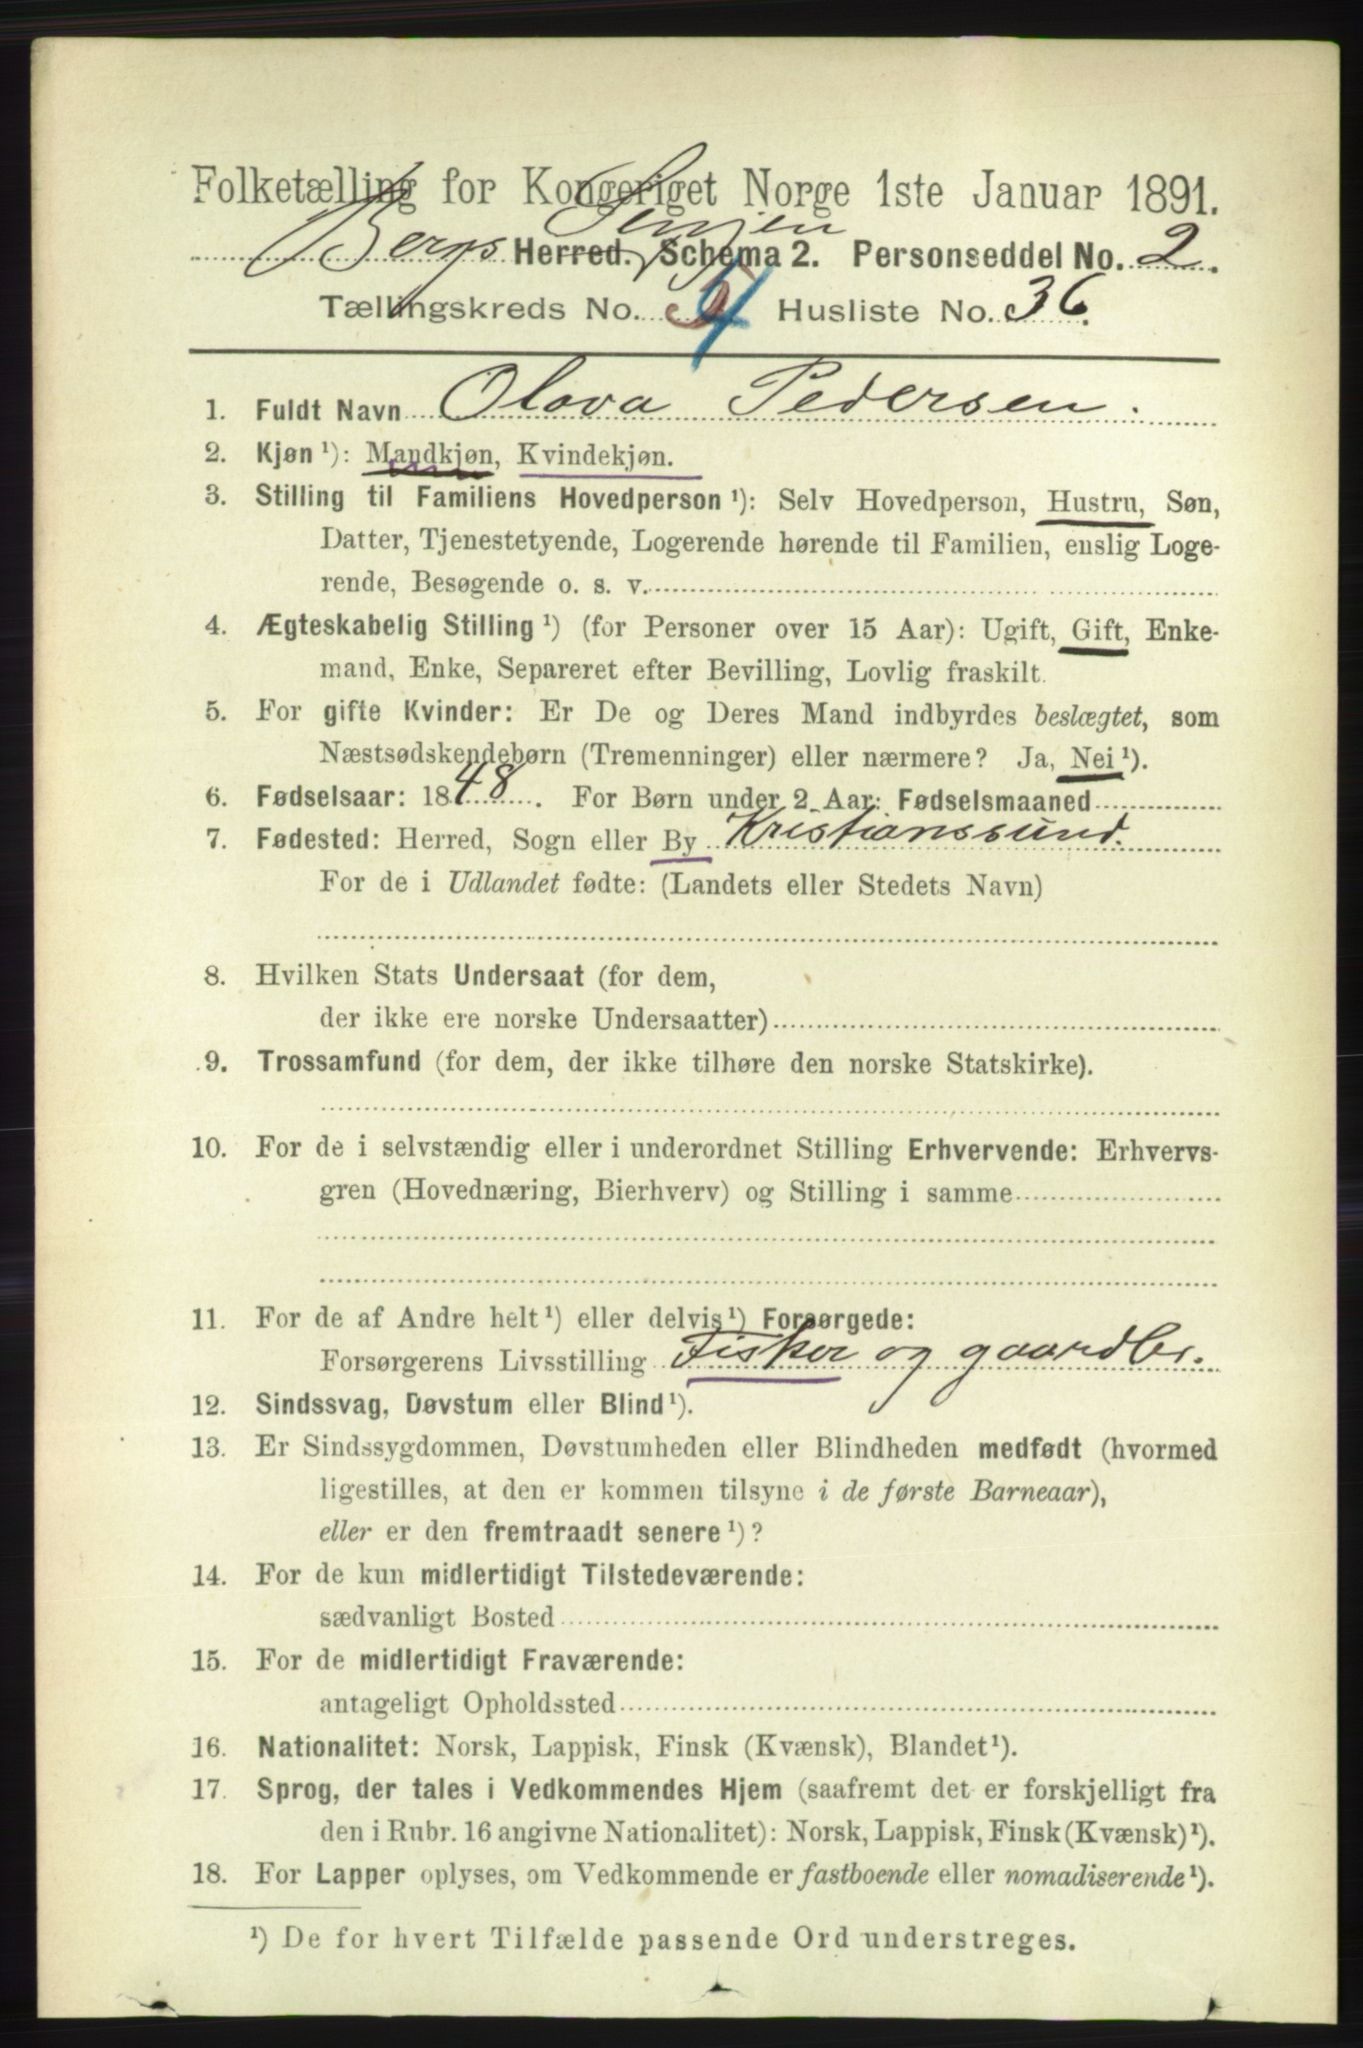 Folketælling for Kongeriget Norge 1ste Januar 1891.
Bergs Senjen Herred. Schema 2. Personseddel No. 2.
Tællingskreds No. 4 Husliste No. 36.
1. Fuldt Navn Olava Pedersen.
2. Kjøn ¹): Mandkjøn, Kvindekjøn.
3. Stilling til Familiens Hovedperson ¹): Selv Hovedperson, Hustru, Søn,
Datter, Tjenestetyende, Logerende hørende til Familien, enslig Loge-
rende, Besøgende o. s. v.
4. Ægteskabelig Stilling ¹) (for Personer over 15 Aar): Ugift, Gift, Enke-
mand, Enke, Separeret efter Bevilling, Lovlig fraskilt.
5. For gifte Kvinder: Er De og Deres Mand indbyrdes beslægtet, som
Næstsødskendebørn (Tremenninger) eller nærmere? Ja, Nei ¹).
6. Fødselsaar: 1848. For Børn under 2 Aar: Fødselsmaaned
7. Fødested: Herred, Sogn eller By Kristianssund.
For de i Udlandet fødte: (Landets eller Stedets Navn)
8. Hvilken Stats Undersaat (for dem,
der ikke ere norske Undersaatter)
9. Trossamfund (for dem, der ikke tilhøre den norske Statskirke).
10. For de i selvstændig eller i underordnet Stilling Erhvervende: Erhvervs-
gren (Hovednæring, Bierhverv) og Stilling i samme
11. For de af Andre helt ¹) eller delvis ¹) Forsørgede:
Forsørgerens Livsstilling Fisker og gaardbr.
12. Sindssvag, Døvstum eller Blind ¹).
13. Er Sindssygdommen, Døvstumheden eller Blindheden medfødt (hvormed
ligestilles, at den er kommen tilsyne i de første Barneaar),
eller er den fremtraadt senere ¹)?
14. For de kun midlertidigt Tilstedeværende:
sædvanligt Bosted
15. For de midlertidigt Fraværende:
antageligt Opholdssted
16. Nationalitet: Norsk, Lappisk, Finsk (Kvænsk), Blandet ¹).
17. Sprog, der tales i Vedkommendes Hjem (saafremt det er forskjelligt fra
den i Rubr. 16 angivne Nationalitet): Norsk, Lappisk, Finsk (Kvænsk) ¹).
18. For Lapper oplyses, om Vedkommende er fastboende eller nomadiserende ¹).
¹) De for hvert Tilfælde passende Ord understreges.